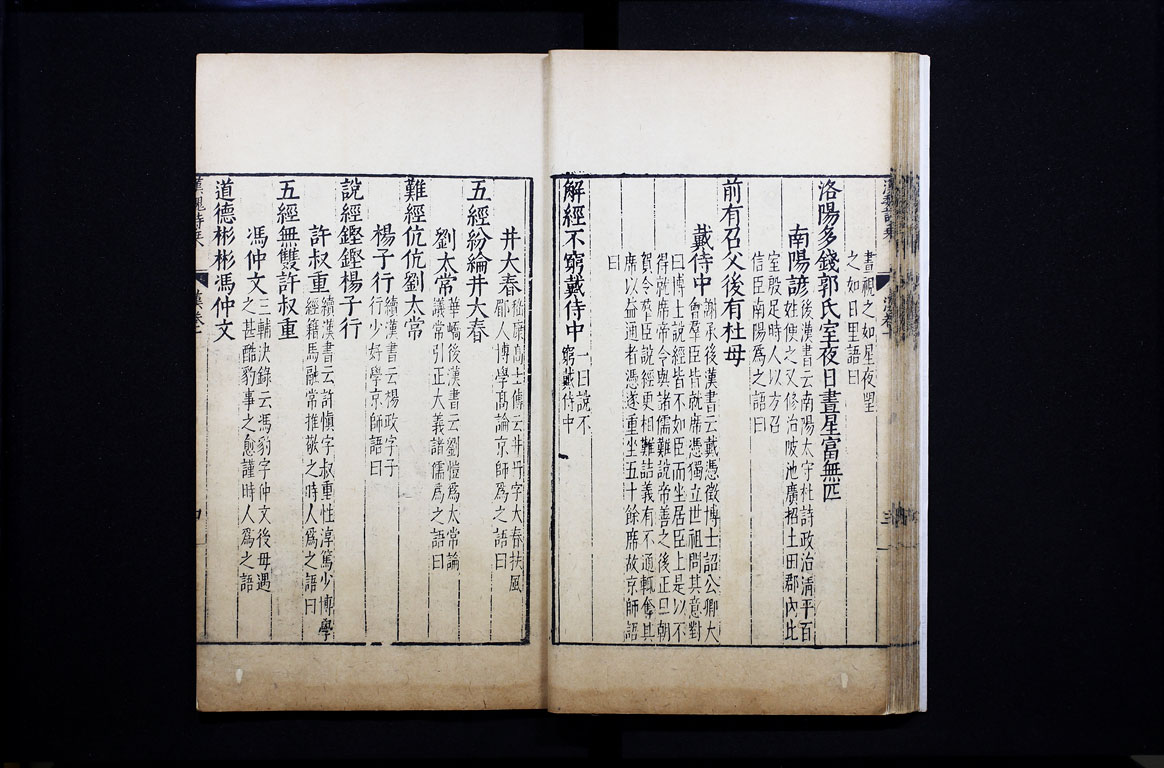 晝視之如星夜朢
之如日里語曰
洛陽多錢郭氏室夜日晝星富無匹
南陽諺
後漢書云南陽太守杜詩政治清平百
姓便之又修治陂池廣招土田郡內比
室殷足時人以方召
信臣南陽爲之語曰
前有召父後有杜母
戴侍中
謝承後漢書云戴憑徵博士詔公卿大
會羣臣皆就席憑獨立世祖問其意對
曰博士說經皆不如臣而坐居臣上是以不
得就席帝令與諸儒難說帝善之後正旦朝
賀令羣臣說經更相難詰義有不通輒奪其
席以益通者憑遂重坐五十餘席故京師語
曰
解經不窮戴侍中
一曰說不
窮戴侍中
井大春
嵇康高士傳云井丹字大春扶風
郿人博學高論京師爲之語曰
五經紛綸井大春
劉太常
華嶠後漢書云劉愷爲太常論
議常引正大義諸儒爲之語曰
難經伉伉劉太常
楊子行
續漢書云楊政字子
行少好學京師語曰
說經鏗鏗楊子行
許叔重
續漢書云許愼字叔重性淳篤少博學
經籍馬融常推敬之時人爲之語曰
五經無雙許叔重
馮仲文
三輔決錄云馮豹字仲文後母遇
之甚酷豹事之愈謹時人爲之語
道德彬彬馮仲文